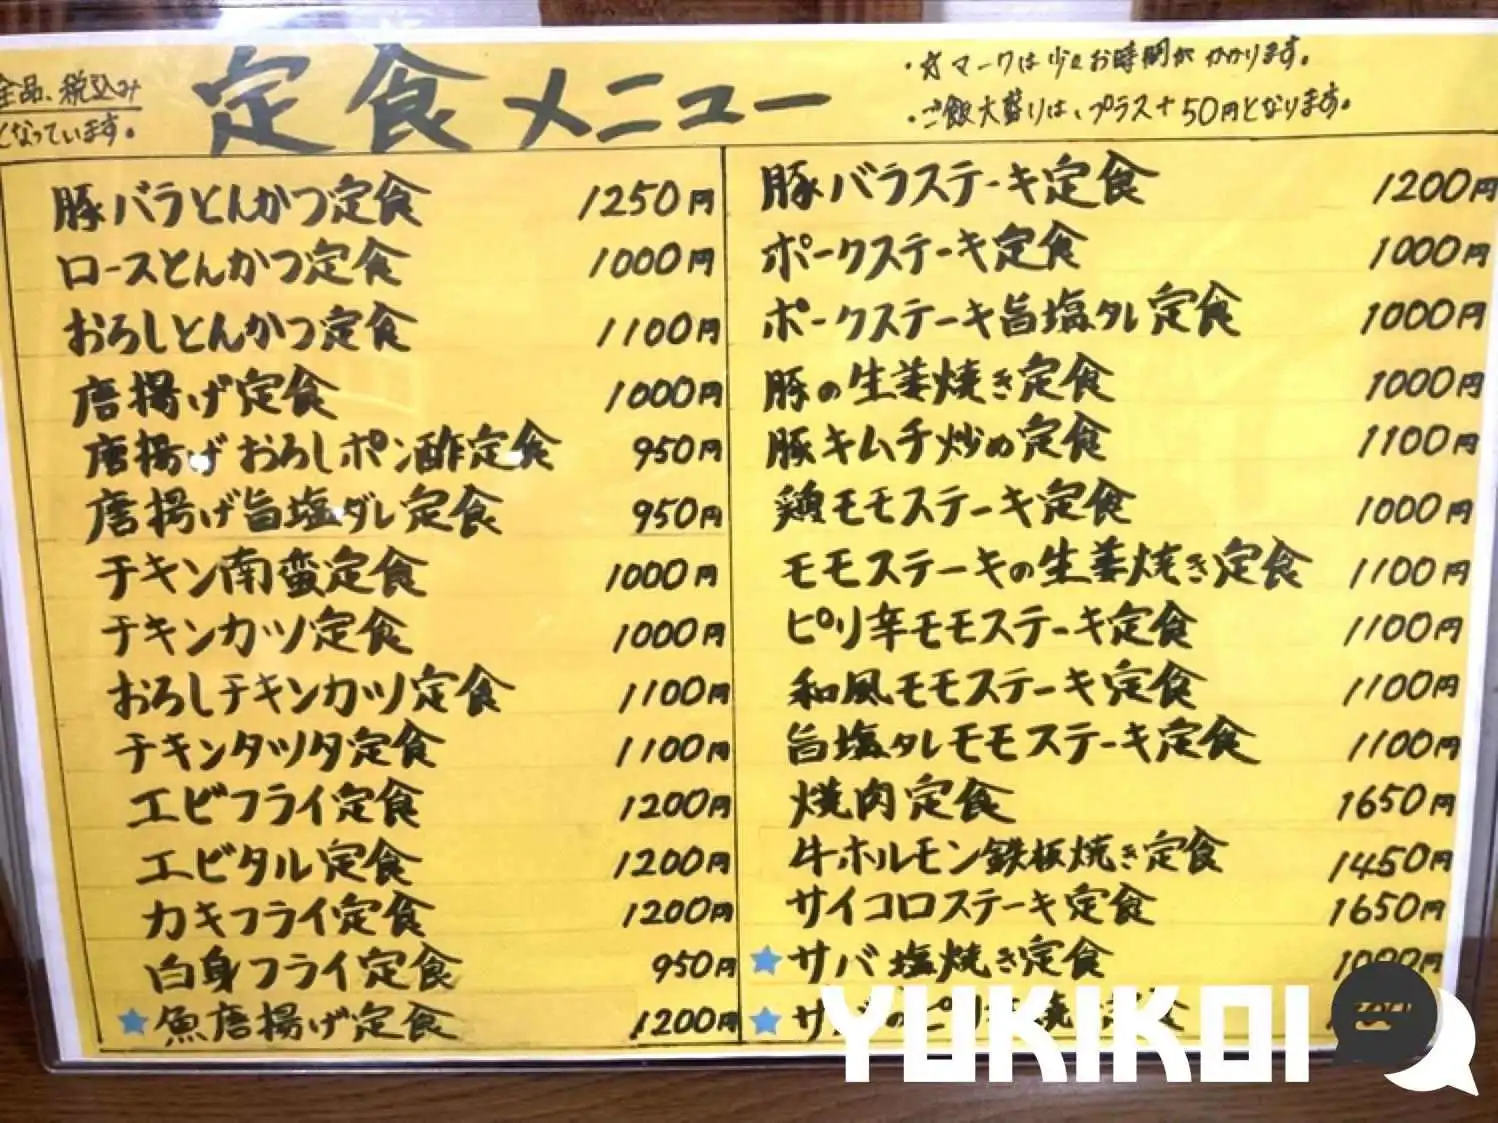 全品、税込み
となっています。
定食メニュー
・☆マークは少々お時間がかかります。
・ご飯大盛りは、プラス+50円となります。
豚バラとんかつ定食 1250円
ロースとんかつ定食 1000円
おろしとんかつ定食 1100円
唐揚げ定食 1000円
唐揚げおろしポン酢定食 950円
唐揚げ旨塩ダレ定食 950円
チキン南蛮定食 1000円
チキンカツ定食 1000円
おろしチキンカツ定食 1100円
チキンタツタ定食 1100円
エビフライ定食 1200円
エビタル定食 1200円
カキフライ定食 1200円
白身フライ定食 950円
★魚唐揚げ定食 1200円
豚バラステーキ定食 1200円
ポークステーキ定食 1000円
ポークステーキ旨塩タレ定食 1000円
豚の生姜焼き定食 1000円
豚キムチ炒め定食 1100円
鶏モモステーキ定食 1000円
モモステーキの生姜焼き定食 1100円
ピリ辛モモステーキ定食 1100円
和風モモステーキ定食 1100円
旨塩タレモモステーキ定食 1100円
焼肉定食 1650円
牛ホルモン鉄板焼き定食 1450円
サイコロステーキ定食 1650円
★サバ塩焼き定食 1000円
★サ
YUKIKOI